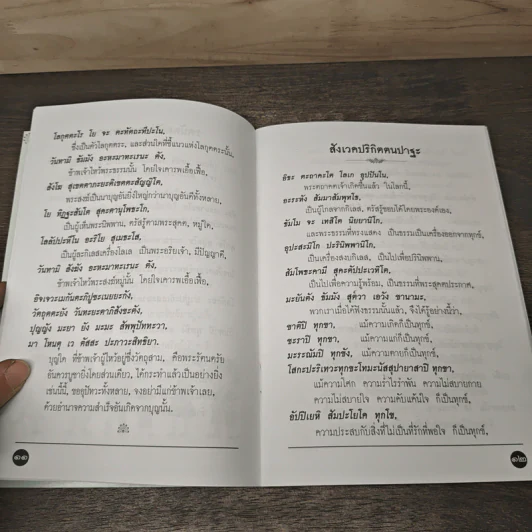 โลกุตตะโร โย จะ ตะทัตถะทีปะโน,
ซึ่งเป็นตัวโลกุตตระ, และส่วนใดที่ชี้แนวแห่งโลกุตตระนั้น,
วันทามิ ธัมมัง อะหะมาทะเรนะ ตัง,
ข้าพเจ้าไหว้พระธรรมนั้น โดยใจเคารพเอื้อเฟื้อ,
สังโฆ สุเขตตาภยะติเขตตะสัญญิโต,
พระสงฆ์เป็นนาบุญอันยิ่งใหญ่กว่านาบุญอันดีทั้งหลาย,
โย ทิฏฐะสันโต สุคะตานุโพธะโก,
เป็นผู้เห็นพระนิพพาน, ตรัสรู้ตามพระสุคต, หมู่ใด,
โลลัปปะหีโน อะริโย สุเมธะโส,
เป็นผู้ละกิเลสเครื่องโลเล เป็นพระอริยเจ้า, มีปัญญาดี,
วันทามิ สังฆัง อะหะมาทะเรนะ ตัง,
ข้าพเจ้าไหว้พระสงฆ์หมู่นั้น โดยใจเคารพเอื้อเฟื้อ,
อิจเจวะเมกันตะภิปูชะเนยยะกัง,
วัตถุตตะยัง วันทะยะตาภิสังขะตัง,
ปุญญัง มะยา ยัง มะมะ สัพพุปัททะวา,
มา โหนตุ เว ตัสสะ ปะภาวะสิทธิยา.
บุญใด ที่ข้าพเจ้าผู้ไหว้อยู่ซึ่งวัตถุสาม, คือพระรัตนตรัย
อันควรบูชายิ่งโดยส่วนเดียว, ได้กระทำแล้วเป็นอย่างยิ่ง
เช่นนี้นี้, ขออุปัทวะทั้งหลาย, จงอย่ามีแก่ข้าพเจ้าเลย,
ด้วยอำนาจความสำเร็จอันเกิดจากบุญนั้น.
๑๑
สังเวคปริกิตตนปาฐะ
อิธะ ตะถาคะโต โลเก อุปปันโน,
พระตถาคตเจ้าเกิดขึ้นแล้ว ในโลกนี้,
อะระหัง สัมมาสัมพุทโธ,
เป็นผู้ไกลจากกิเลส, ตรัสรู้ชอบได้โดยพระองค์เอง,
ธัมโม จะ เทสิโต นิยยานิโก,
และพระธรรมที่ทรงแสดง เป็นธรรมเครื่องออกจากทุกข์,
อุปะสะมิโก ปะรินิพพานิโก,
เป็นเครื่องสงบกิเลส, เป็นไปเพื่อปรินิพพาน,
สัมโพธะคามี สุคะตัปปะเวทิโต,
เป็นไปเพื่อความรู้พร้อม, เป็นธรรมที่พระสุคตประกาศ,
มะยันตัง ธัมมัง สุตวา เอวัง ชานามะ,
พวกเราเมื่อได้ฟังธรรมนั้นแล้ว, จึงได้รู้อย่างนี้ว่า,
ชาติปิ ทุกขา, แม้ความเกิดก็เป็นทุกข์,
ชะราปิ ทุกขา, แม้ความแก่ก็เป็นทุกข์,
มะระณัมปิ ทุกขัง, แม้ความตายก็เป็นทุกข์,
โสกะปะริเทวะทุกขะโทมะนัสสุปายาสาปิ ทุกขา,
แม้ความโศก ความร่ำไรรำพัน ความไม่สบายกาย
ความไม่สบายใจ ความคับแค้นใจ ก็เป็นทุกข์,
อัปปิเยหิ สัมปะโยโค ทุกโข,
ความประสบกับสิ่งที่ไม่เป็นที่รักที่พอใจ ก็เป็นทุกข์,
๑๒